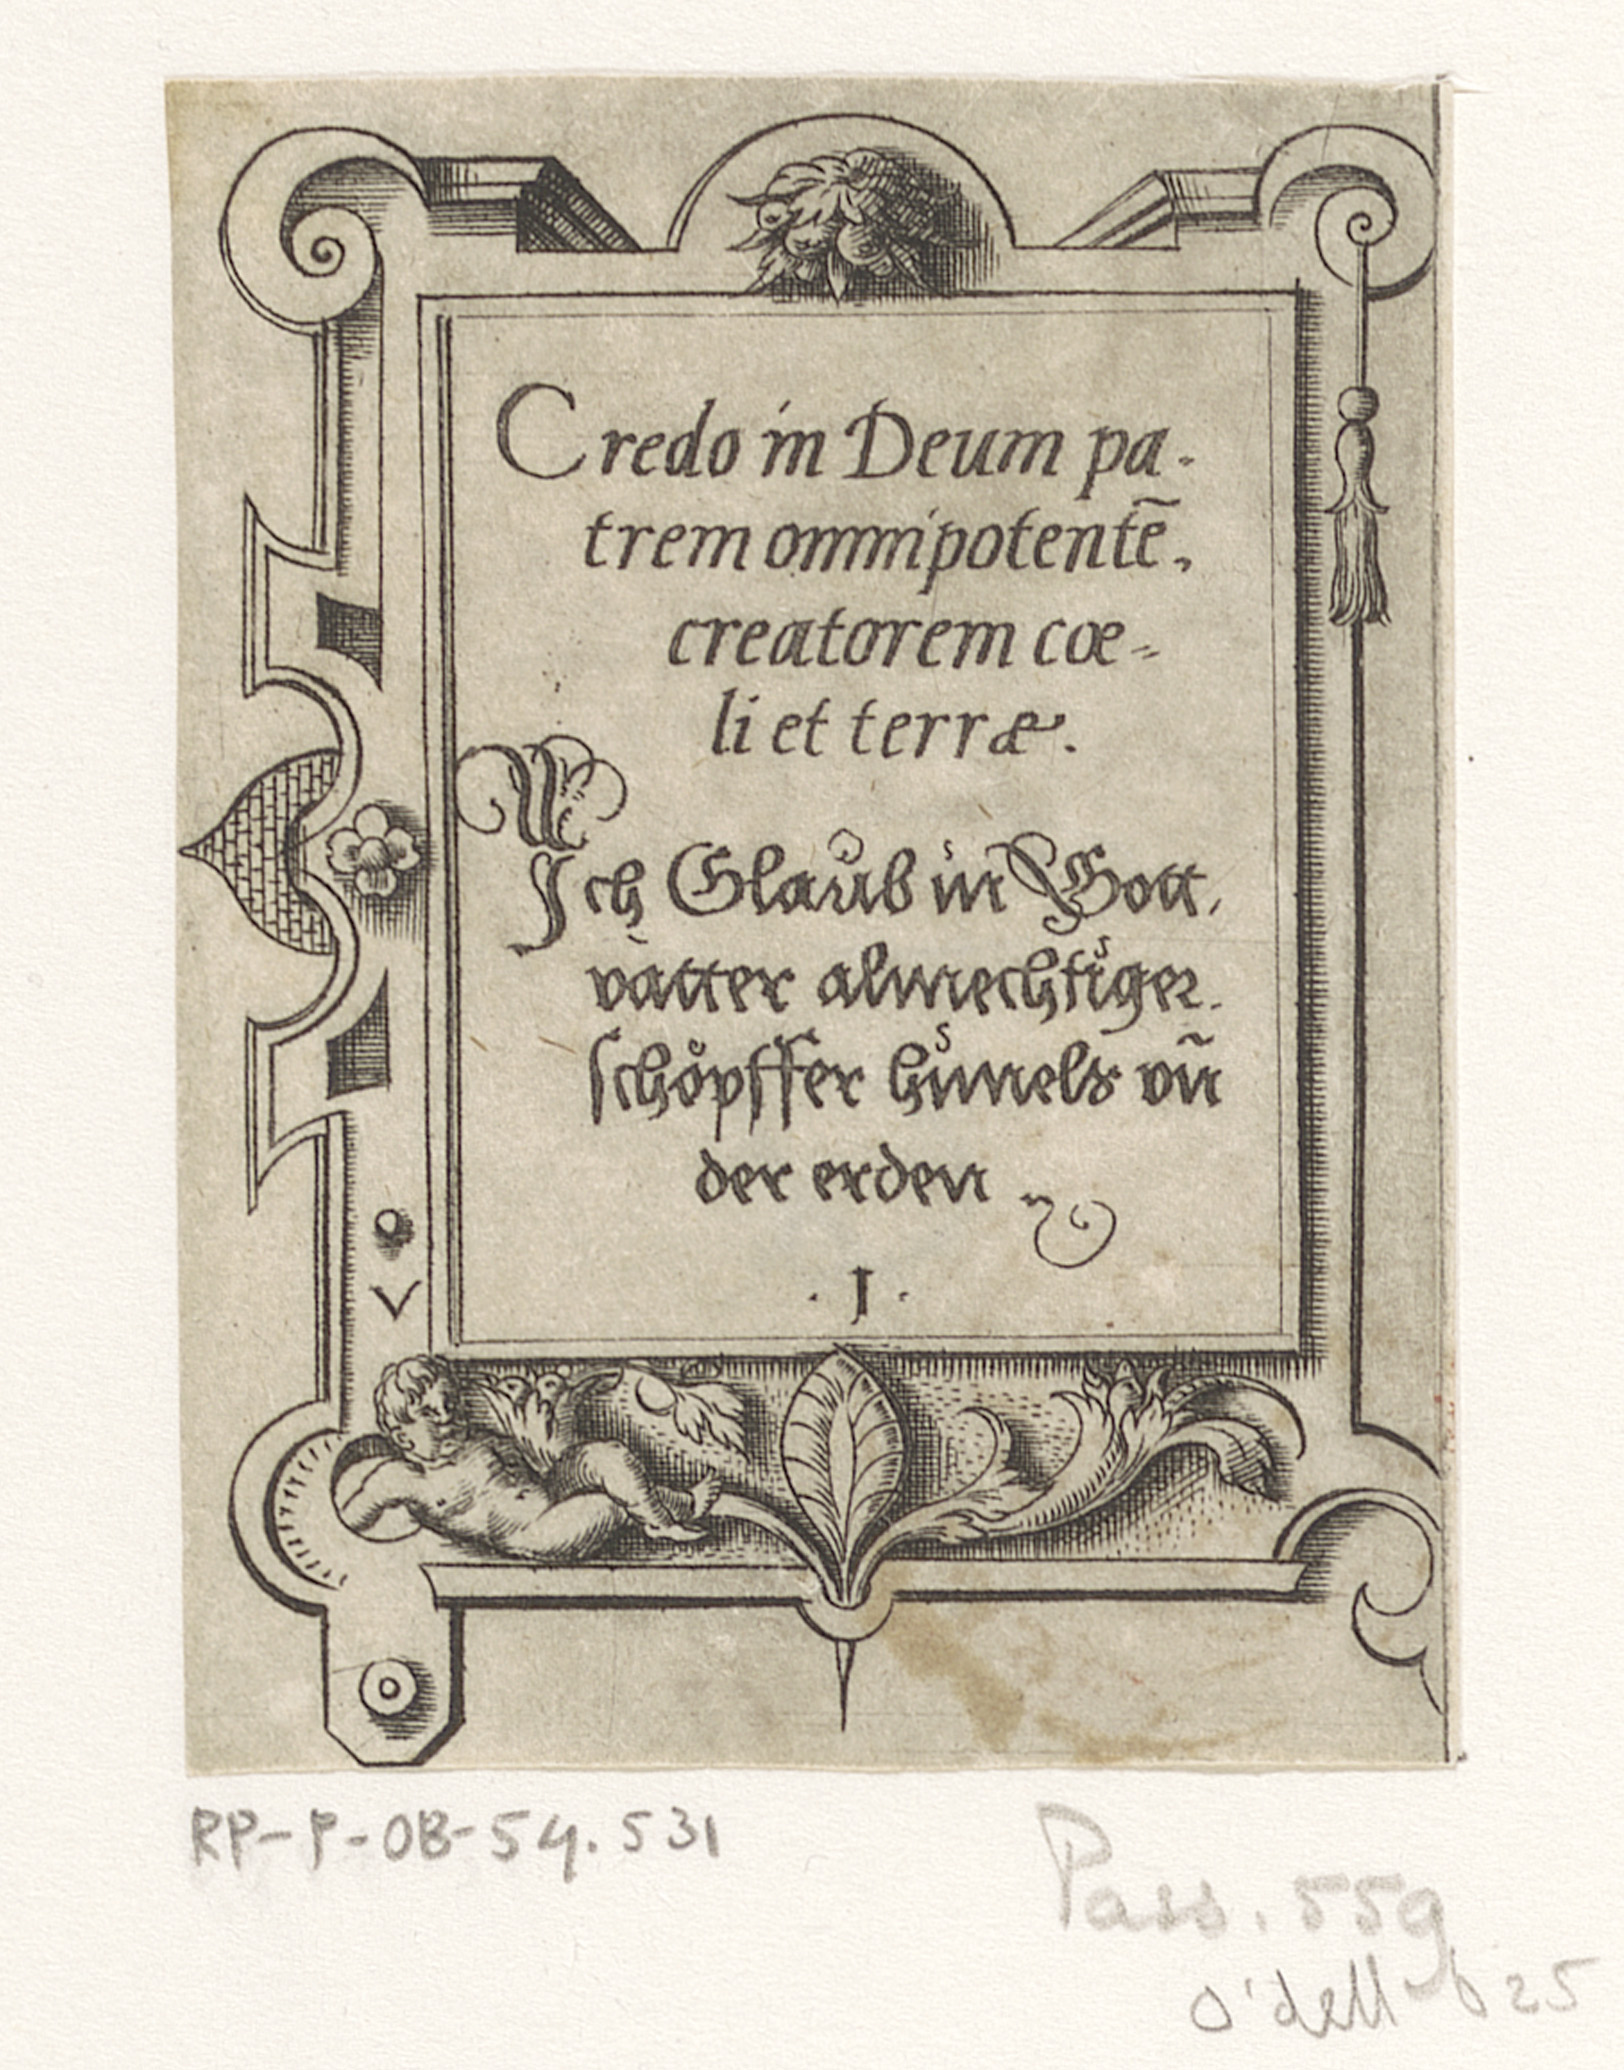 Credo in Deum pa-
trem omnipotentē,
creatorem cœ-
li et terræ.
Ich Glaůb in Gott,
vatter almechtiger
schöpffer himels vn̄
der erden
· I ·
RP-P-OB-54.531
Pass. 559
O'dell b 25